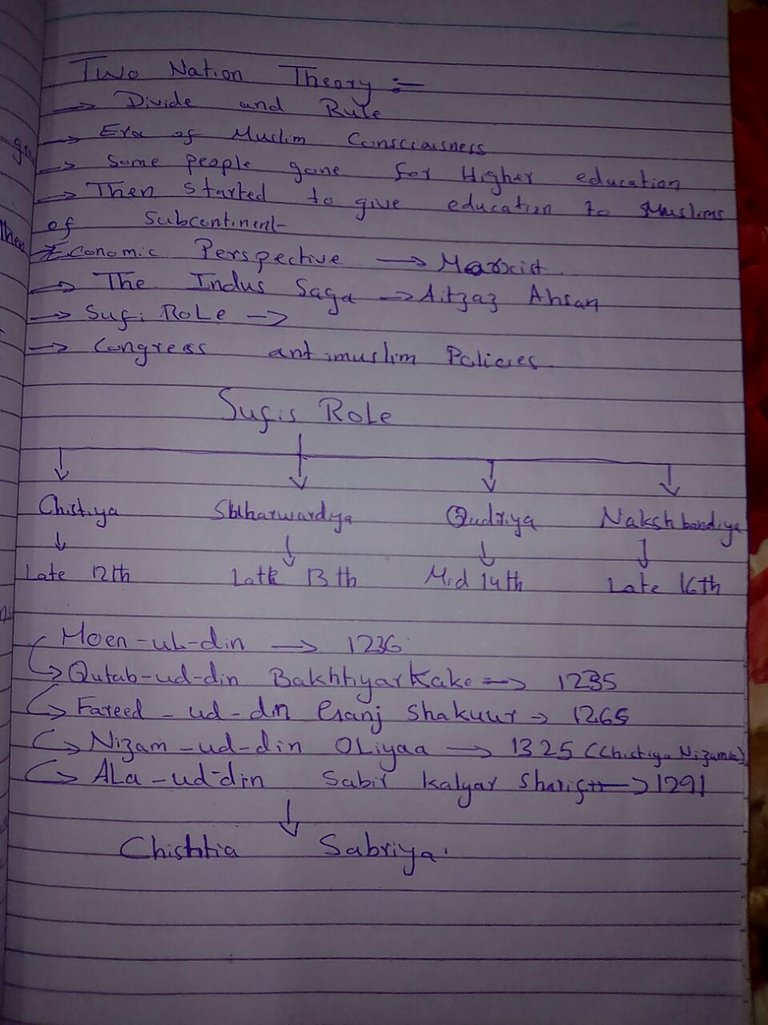 Two Nation Theory :-
→ Divide and Rule
→ Era of Muslim Consciousness
→ Some people gone for Higher education
→ Then started to give education to Muslims
of Subcontinent
Economic Perspective → Marxist
→ The Indus Saga → Aitzaz Ahsan
→ Sufi Role →
→ Congress antimuslim Policies
Sufis Role
Chistiya Suharwardiya Qudriya Nakshbandiya
Late 12th Late 13th Mid 14th Late 16th
Moen-ud-din → 1236
Qutab-ud-din Bakhtiyar Kake → 1235
Fareed-ud-din Ganj Shakuur → 1265
Nizam-ud-din Oliyaa → 1325 (Chistiya Nizamia)
Ala-ud-din Sabir Kalyar Sharif → 1291
Chishtia Sabriya